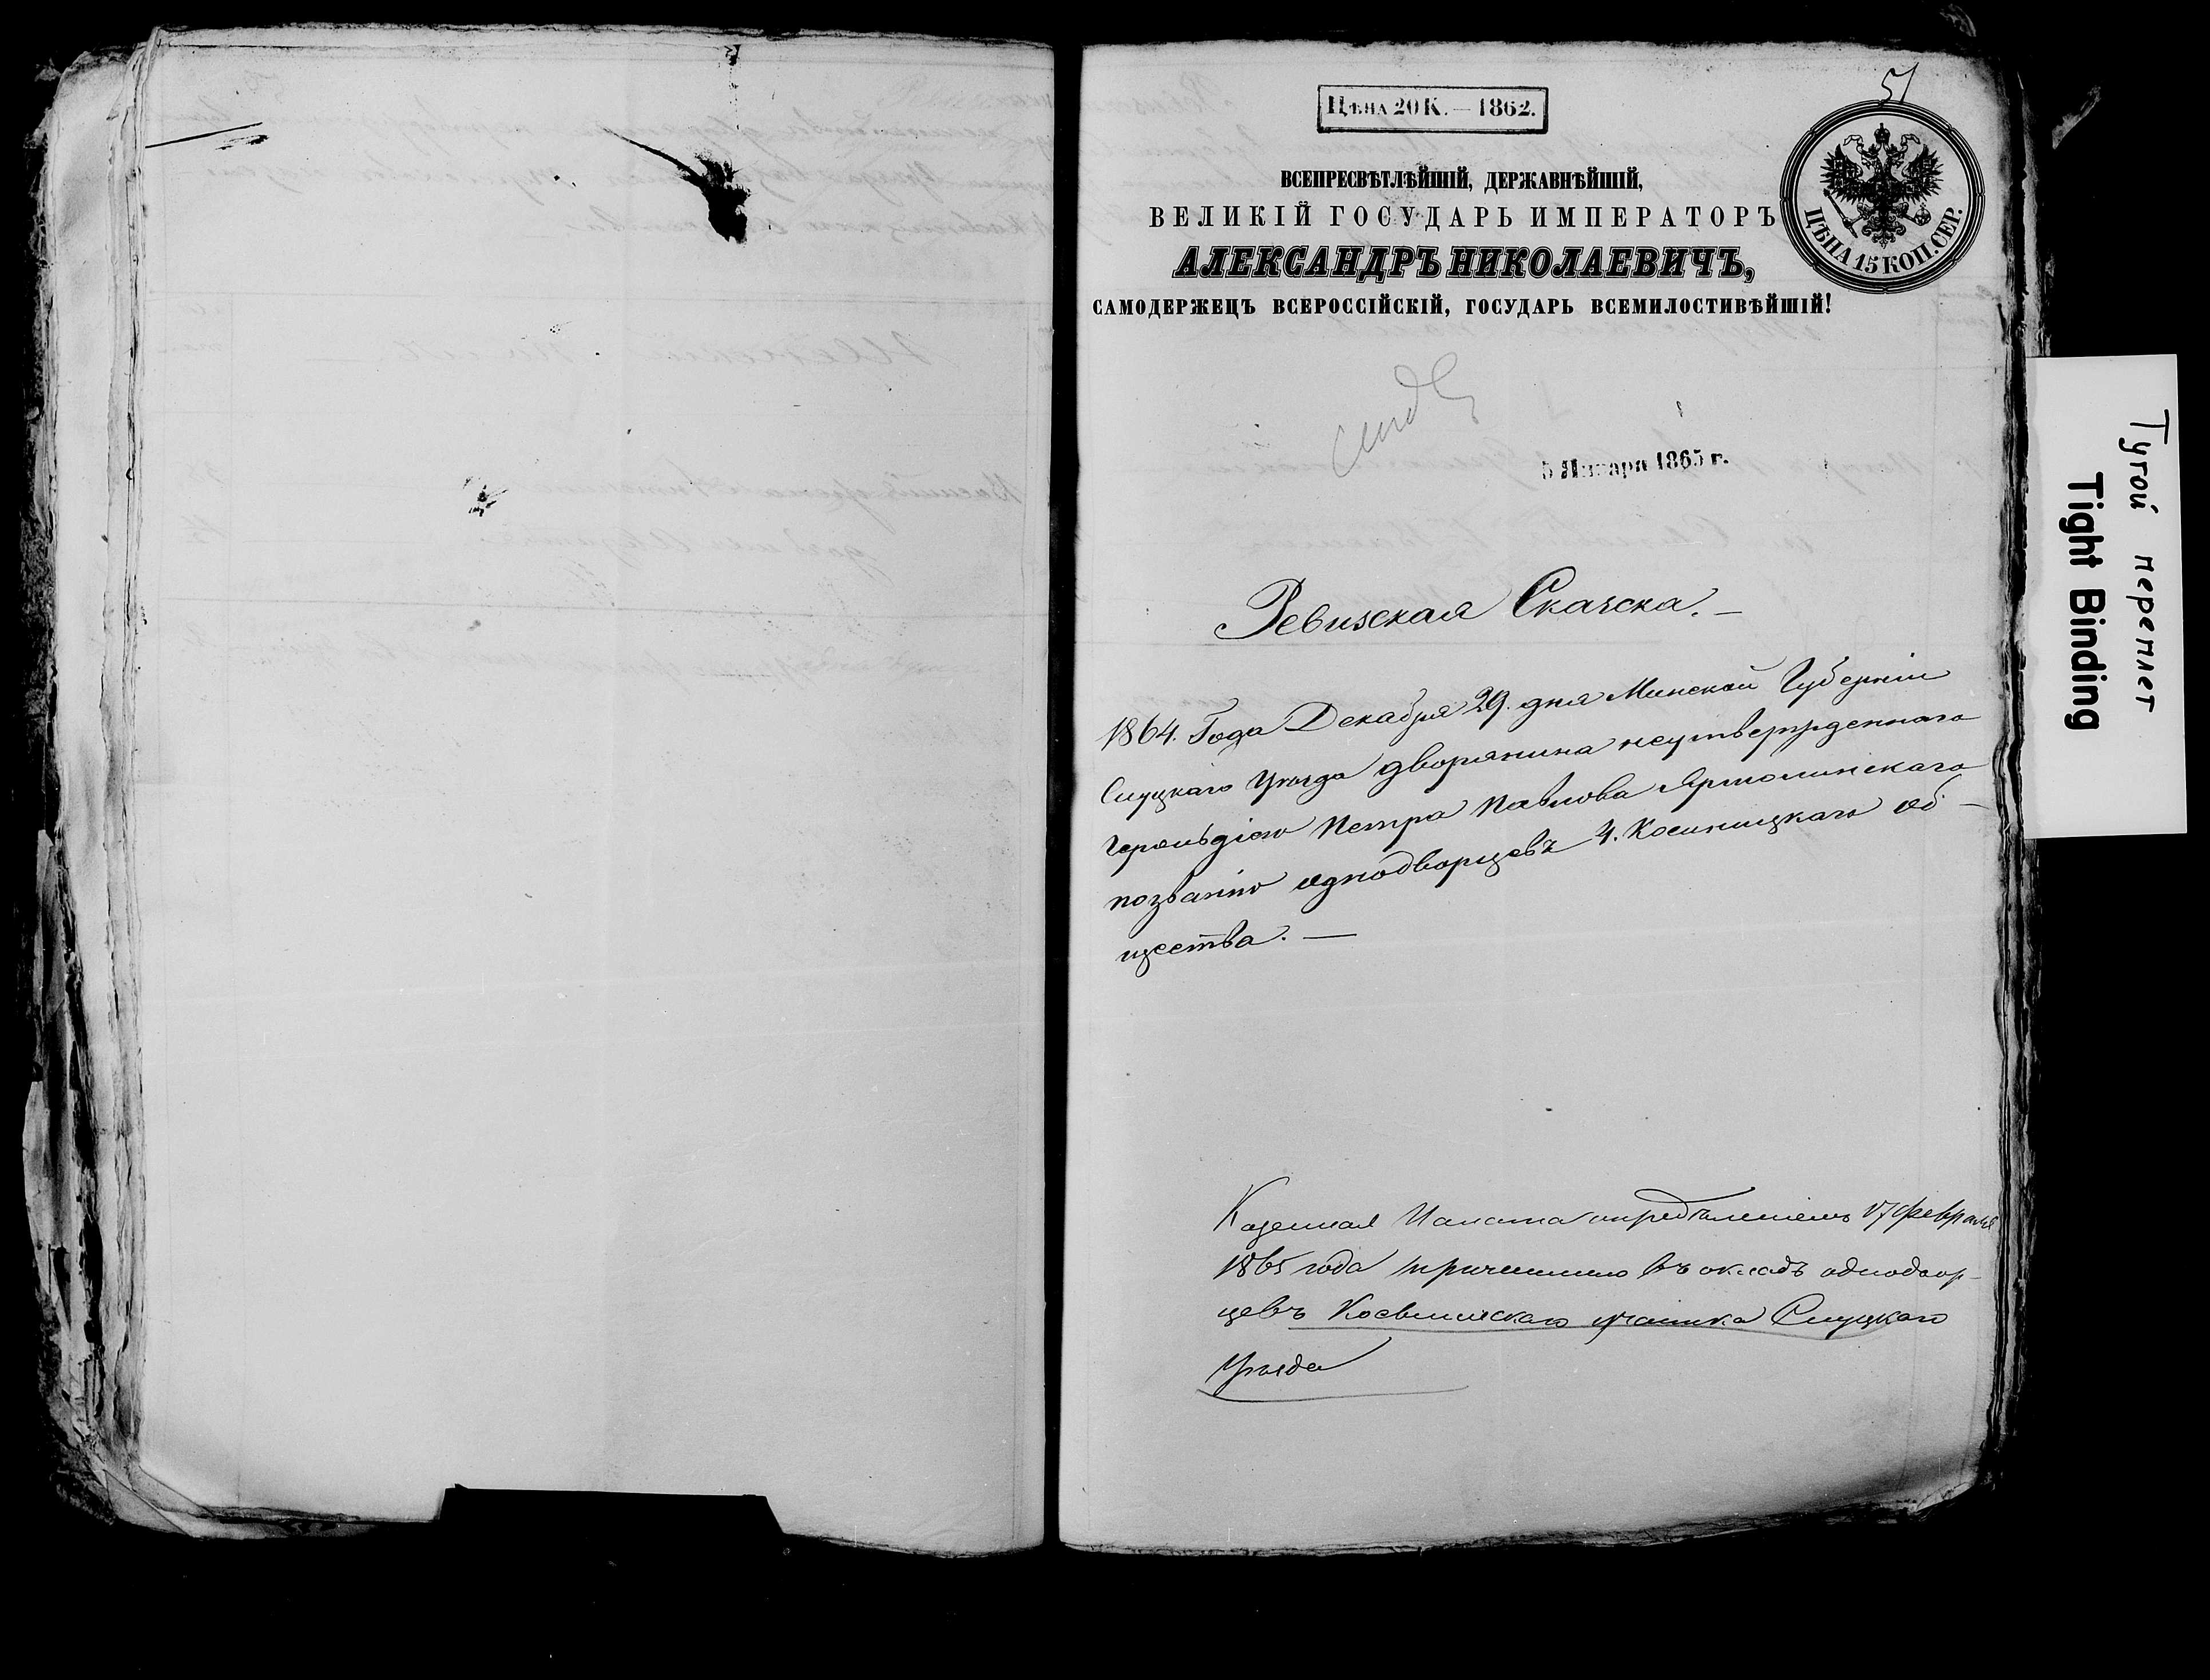 51
ЦѢНА 20 К. — 1862.
ВСЕПРЕСВѢТЛѢЙШІЙ, ДЕРЖАВНѢЙШІЙ,
ВЕЛИКІЙ ГОСУДАРЬ ИМПЕРАТОРЪ
АЛЕКСАНДРЪ НИКОЛАЕВИЧЪ,
САМОДЕРЖЕЦЪ ВСЕРОССІЙСКІЙ, ГОСУДАРЬ ВСЕМИЛОСТИВѢЙШІЙ!
ЦѢНА 15 КОП. СЕР.
5 Января 1865 г.
Ревизская Сказска. —
1864. Года Декабря 29. дня Минской Губерніи
Слуцкаго Уѣзда дворянина неутвержденнаго
Герольдіею Петра Павлова Ярмолинскаго
по званію однодворцевъ 4. Об-
щества. —
Казенная Палата опредѣленіемъ 17 февраля
1865 года причислило въ окладъ однодвор-
цевъ участка Слуцкаго
Уѣзда
Тугой переплет
Tight Binding